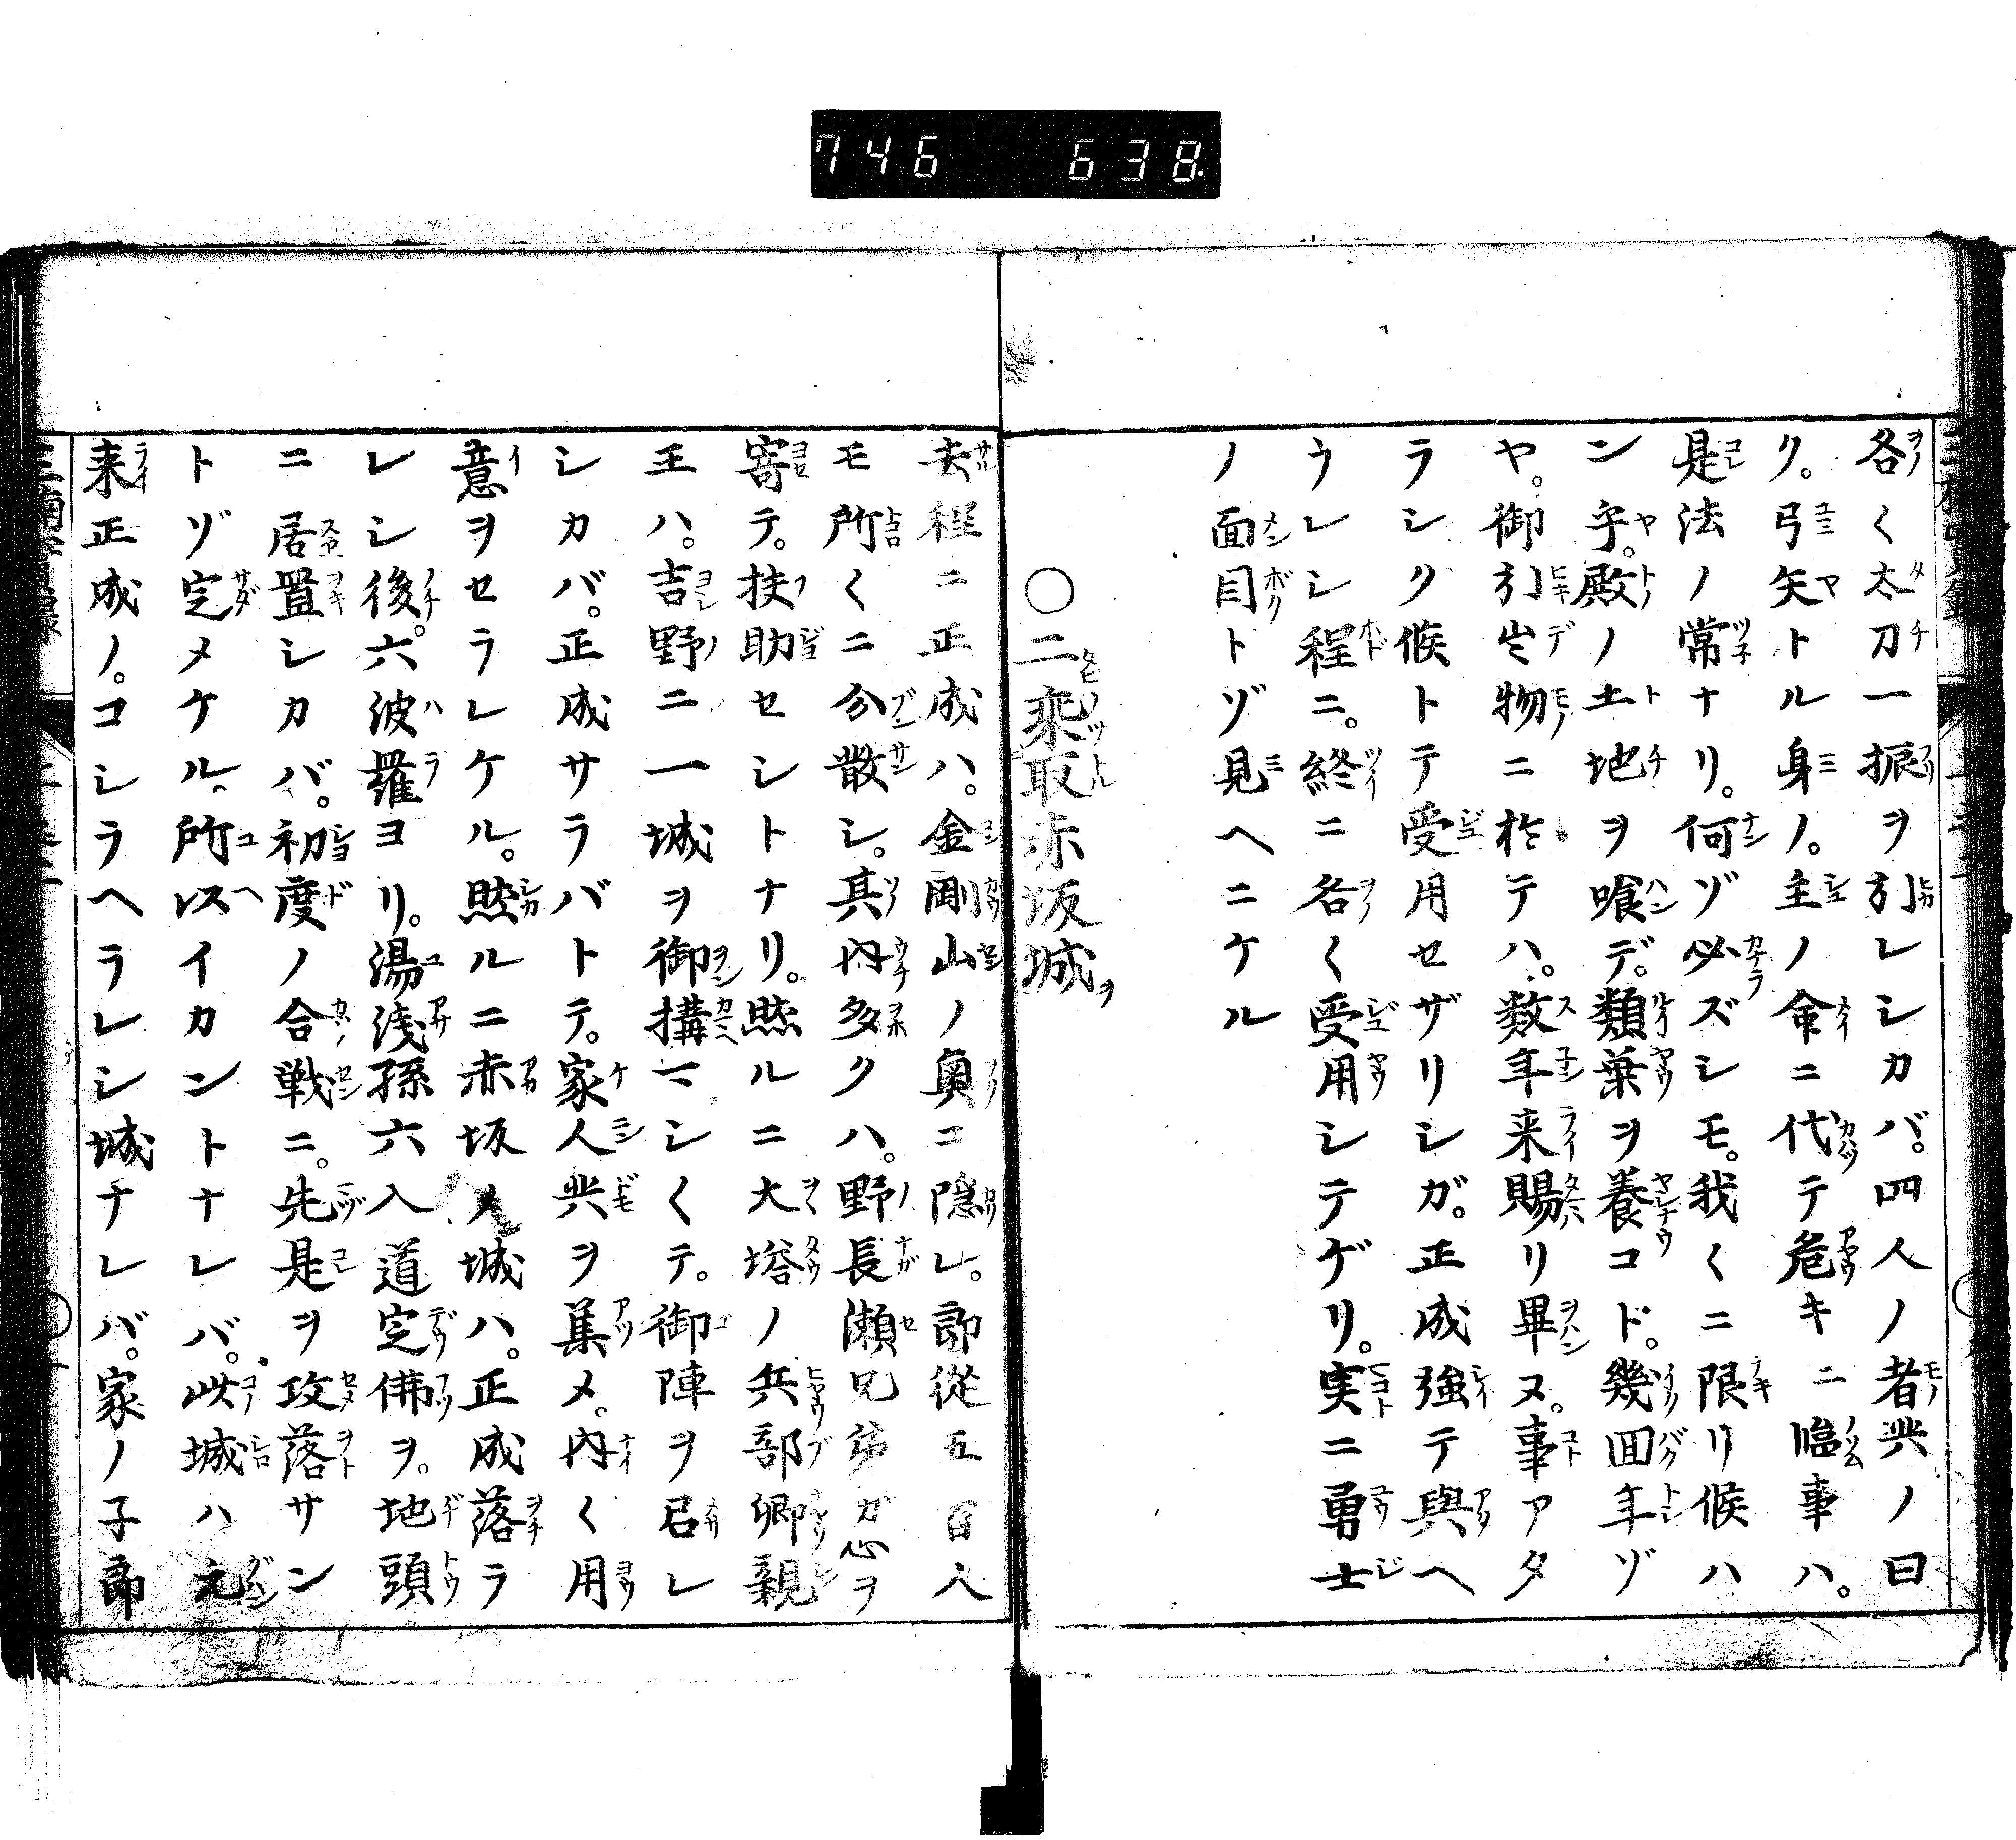 746 638
各〱太刀一振ヲ引レシカバ。四人ノ者共ノ曰
リ。弓矢トル身ノ。主ノ命ニ代テ危キニ臨事ハ。
是法ノ常ナリ。何ゾ必ズシモ。我〱ニ限リ候ハ
ン乎。殿ノ土地ヲ喰デ。類葉ヲ養コド。幾回年ゾ
ヤ。御引出物ニ於テハ。数年来賜リ畢ヌ。事アタ
ラシク候トテ受用セザリシガ。正成強テ與ヘ
ウレシ程ニ。終ニ各〱受用シテゲリ。実ニ勇士
ノ面目トゾ見ヘニケル
〇二乗取赤坂城ヲ
去程ニ正成ハ。金剛山ノ奥ニ隠レ。郎従五百人
モ所〱ニ分散シ。其内多クハ。野長瀬兄弟ガ心ヲ
寄テ。扶助セシトナリ。然ルニ大塔ノ兵部卿親
王ハ。吉野ニ一城ヲ御構マシ〱テ。御陣ヲ召レ
シカバ。正成サラバトテ。家人共ヲ集メ。内〱用
意ヲセラレケル。然ルニ赤坂ノ城ハ。正成落ラ
レシ後。六波羅ヨリ。湯浅孫六入道定佛ヲ。地頭
ニ居置シカバ。初度ノ合戦ニ。先是ヲ攻落サン
トゾ定メケル。所以イカントナレバ。此城ハ元
来正成ノ。コシラヘラレシ城ナレバ。家ノ子郎